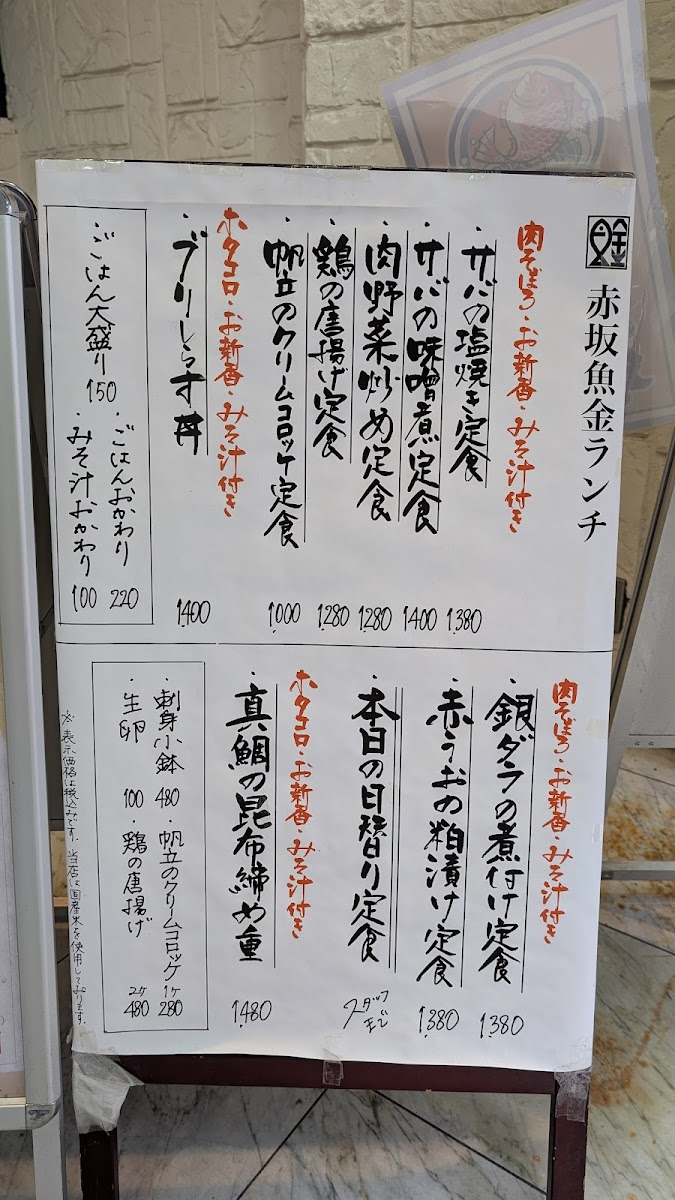 赤坂魚金ランチ
肉そぼろ・お新香・みそ汁付き
・サバの塩焼き定食 1,380
・サバの味噌煮定食 1400
・肉野菜炒め定食 1,280
・鶏の唐揚げ定食 1,280
・帆立のクリームコロッケ定食 1,000
ホタコロ・お新香・みそ汁付き
・ブリしらす丼 1,400
・ごはん大盛り 150
・ごはんおかわり 220
・みそ汁おかわり 100
肉そぼろ・お新香・みそ汁付き
・銀ダラの煮付け定食 1,380
・赤うおの粕漬け定食 1,380
・本日の日替り定食 スタッフまで
ホタコロ・お新香・みそ汁付き
・真鯛の昆布締め重 1,480
・刺身小鉢 480
・帆立のクリームコロッケ 1ケ 280
・生卵 100
・鶏の唐揚げ 2ケ 480
※表示価格は税込みです。当店は国産米を使用しております。